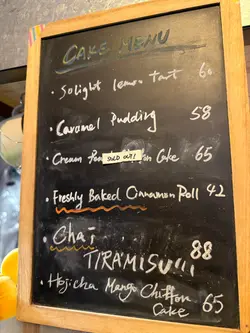 CAKE MENU
· Solight lemon tart 60
· Caramel Pudding 58
· Cream SOLD OUT! Cake 65
· Freshly Baked Cinnamon Roll 42
· Chai
TIRAMISU!!! 88
· Hojicha Mango Chiffon
Cake 65